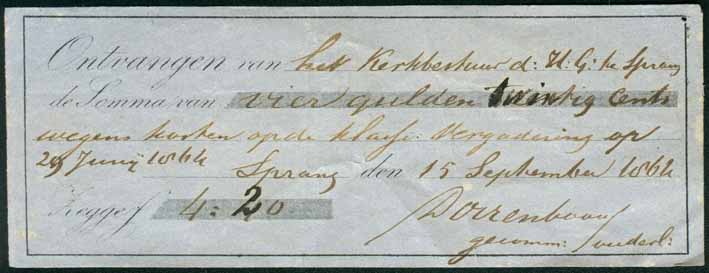 Ontvangen van het Kerkbestuur d: H: G: te Sprang
de Somma van vier gulden twintig cents
wegens kosten op de klass: Vergadering op
29 Junij 1864
Sprang den 15 September 1864
Zegge f 4:20
gecomm: ouderl: